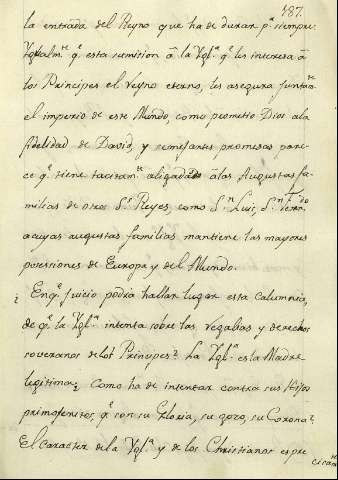 187.
la entrada del Reyno que ha de durar p.ª siempre.
Igualm.te q.e esta sumision â la Igl.ª q.e les interesa â
los Principes el reyno eterno, les asegura juntam.te
el imperio de este Mundo, como prometio Dios a la
fidelidad de David, y semejantes promesas pare-
ce q.e tiene tacitam.te aligadas â las Augustas fa-
milias de otros S.s Reyes como S.n Luis, S.n Fern.do
a cuyas augustas familias mantiene las mayores
posesiones de Europa y del Mundo.
¿ En q.e juicio podia hallar lugar esta calumnia,
de q.e la Igl.ª intenta sobre las regalias y derechos
soveranos de los Principes? La Igl.ª es la Madre
legitima; Como ha de intentar contra sus Hijos
primogenitos, q.e son su Gloria, su gozo, su Corona?
El caracter de la Igl.ª y de los Christianos es pre-
cisam.te